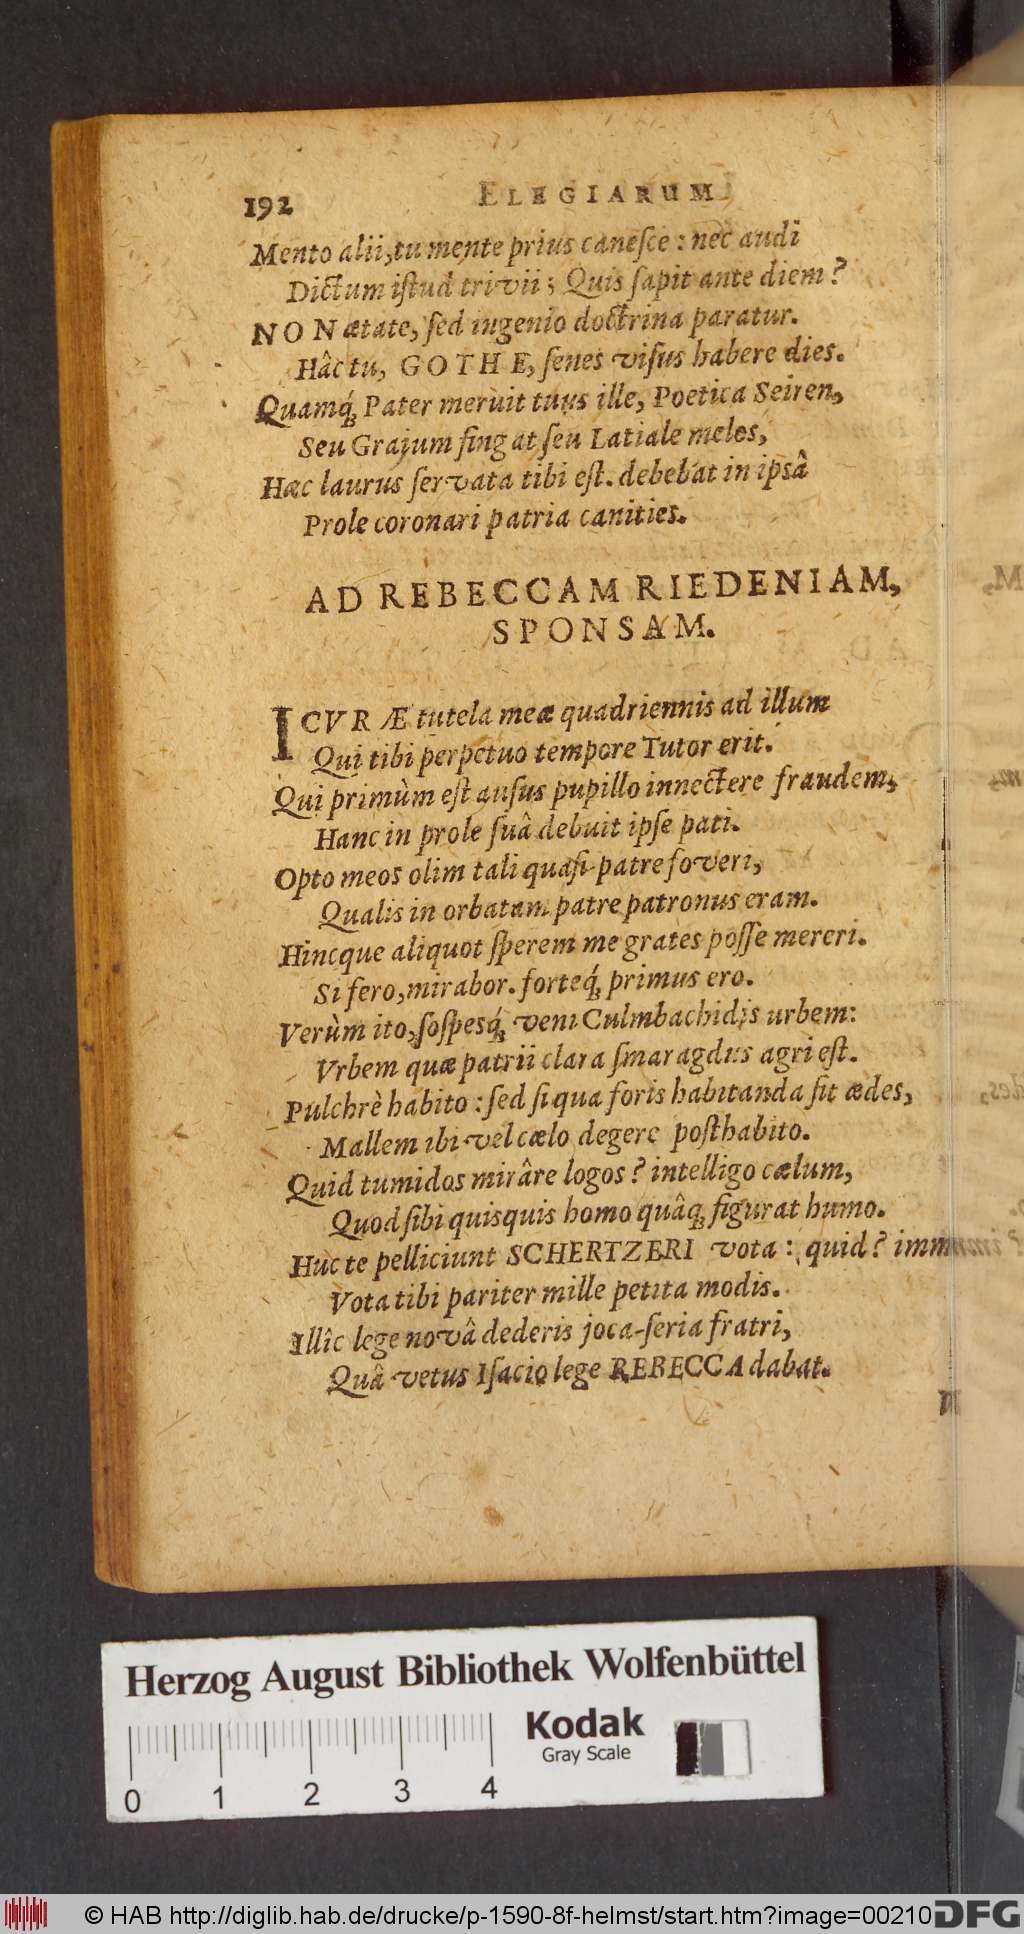 192 ELEGIARUM
Mento alii, tu mente prius canesce : nec audi
Dictum istud trivii ; Quis sapit ante diem ?
NON ætate, sed ingenio doctrina paratur.
Hâc tu, GOTHE, senes visus habere dies.
Quamq́; Pater meruit tuus ille, Poetica Seiren,
Seu Grajum fingat seu Latiale meles,
Hæc laurus servata tibi est. debebat in ipsâ
Prole coronari patria canities.
AD REBECCAM RIEDENIAM,
SPONSAM.
I CVRÆ tutela meæ quadriennis ad illum
Qui tibi perpetuo tempore Tutor erit.
Qui primùm est ausus pupillo innectere fraudem,
Hanc in prole suâ debuit ipse pati.
Opto meos olim tali quasi patre foveri,
Qualis in orbatam patre patronus eram.
Hincque aliquot sperem me grates posse mereri.
Si fero, mirabor. forteq́; primus ero.
Verùm ito, sospesq́; veni Culmbachidis urbem:
Vrbem quæ patrii clara smaragdus agri est.
Pulchrè habito : sed si qua foris habitanda sit ædes,
Mallem ibi vel cælo degere posthabito.
Quid tumidos mirâre logos ? intelligo cælum,
Quod sibi quisquis homo quâq; figurat humo.
Huc te pelliciunt SCHERTZERI vota : quid ?
Vota tibi pariter mille petita modis.
Illîc lege novâ dederis joca-seria fratri,
Quâ vetus Isacio lege REBECCA dabat.
Herzog August Bibliothek Wolfenbüttel
Kodak
Gray Scale
0 1 2 3 4
© HAB http://diglib.hab.de/drucke/p-1590-8f-helmst/start.htm?image=00210 DFG